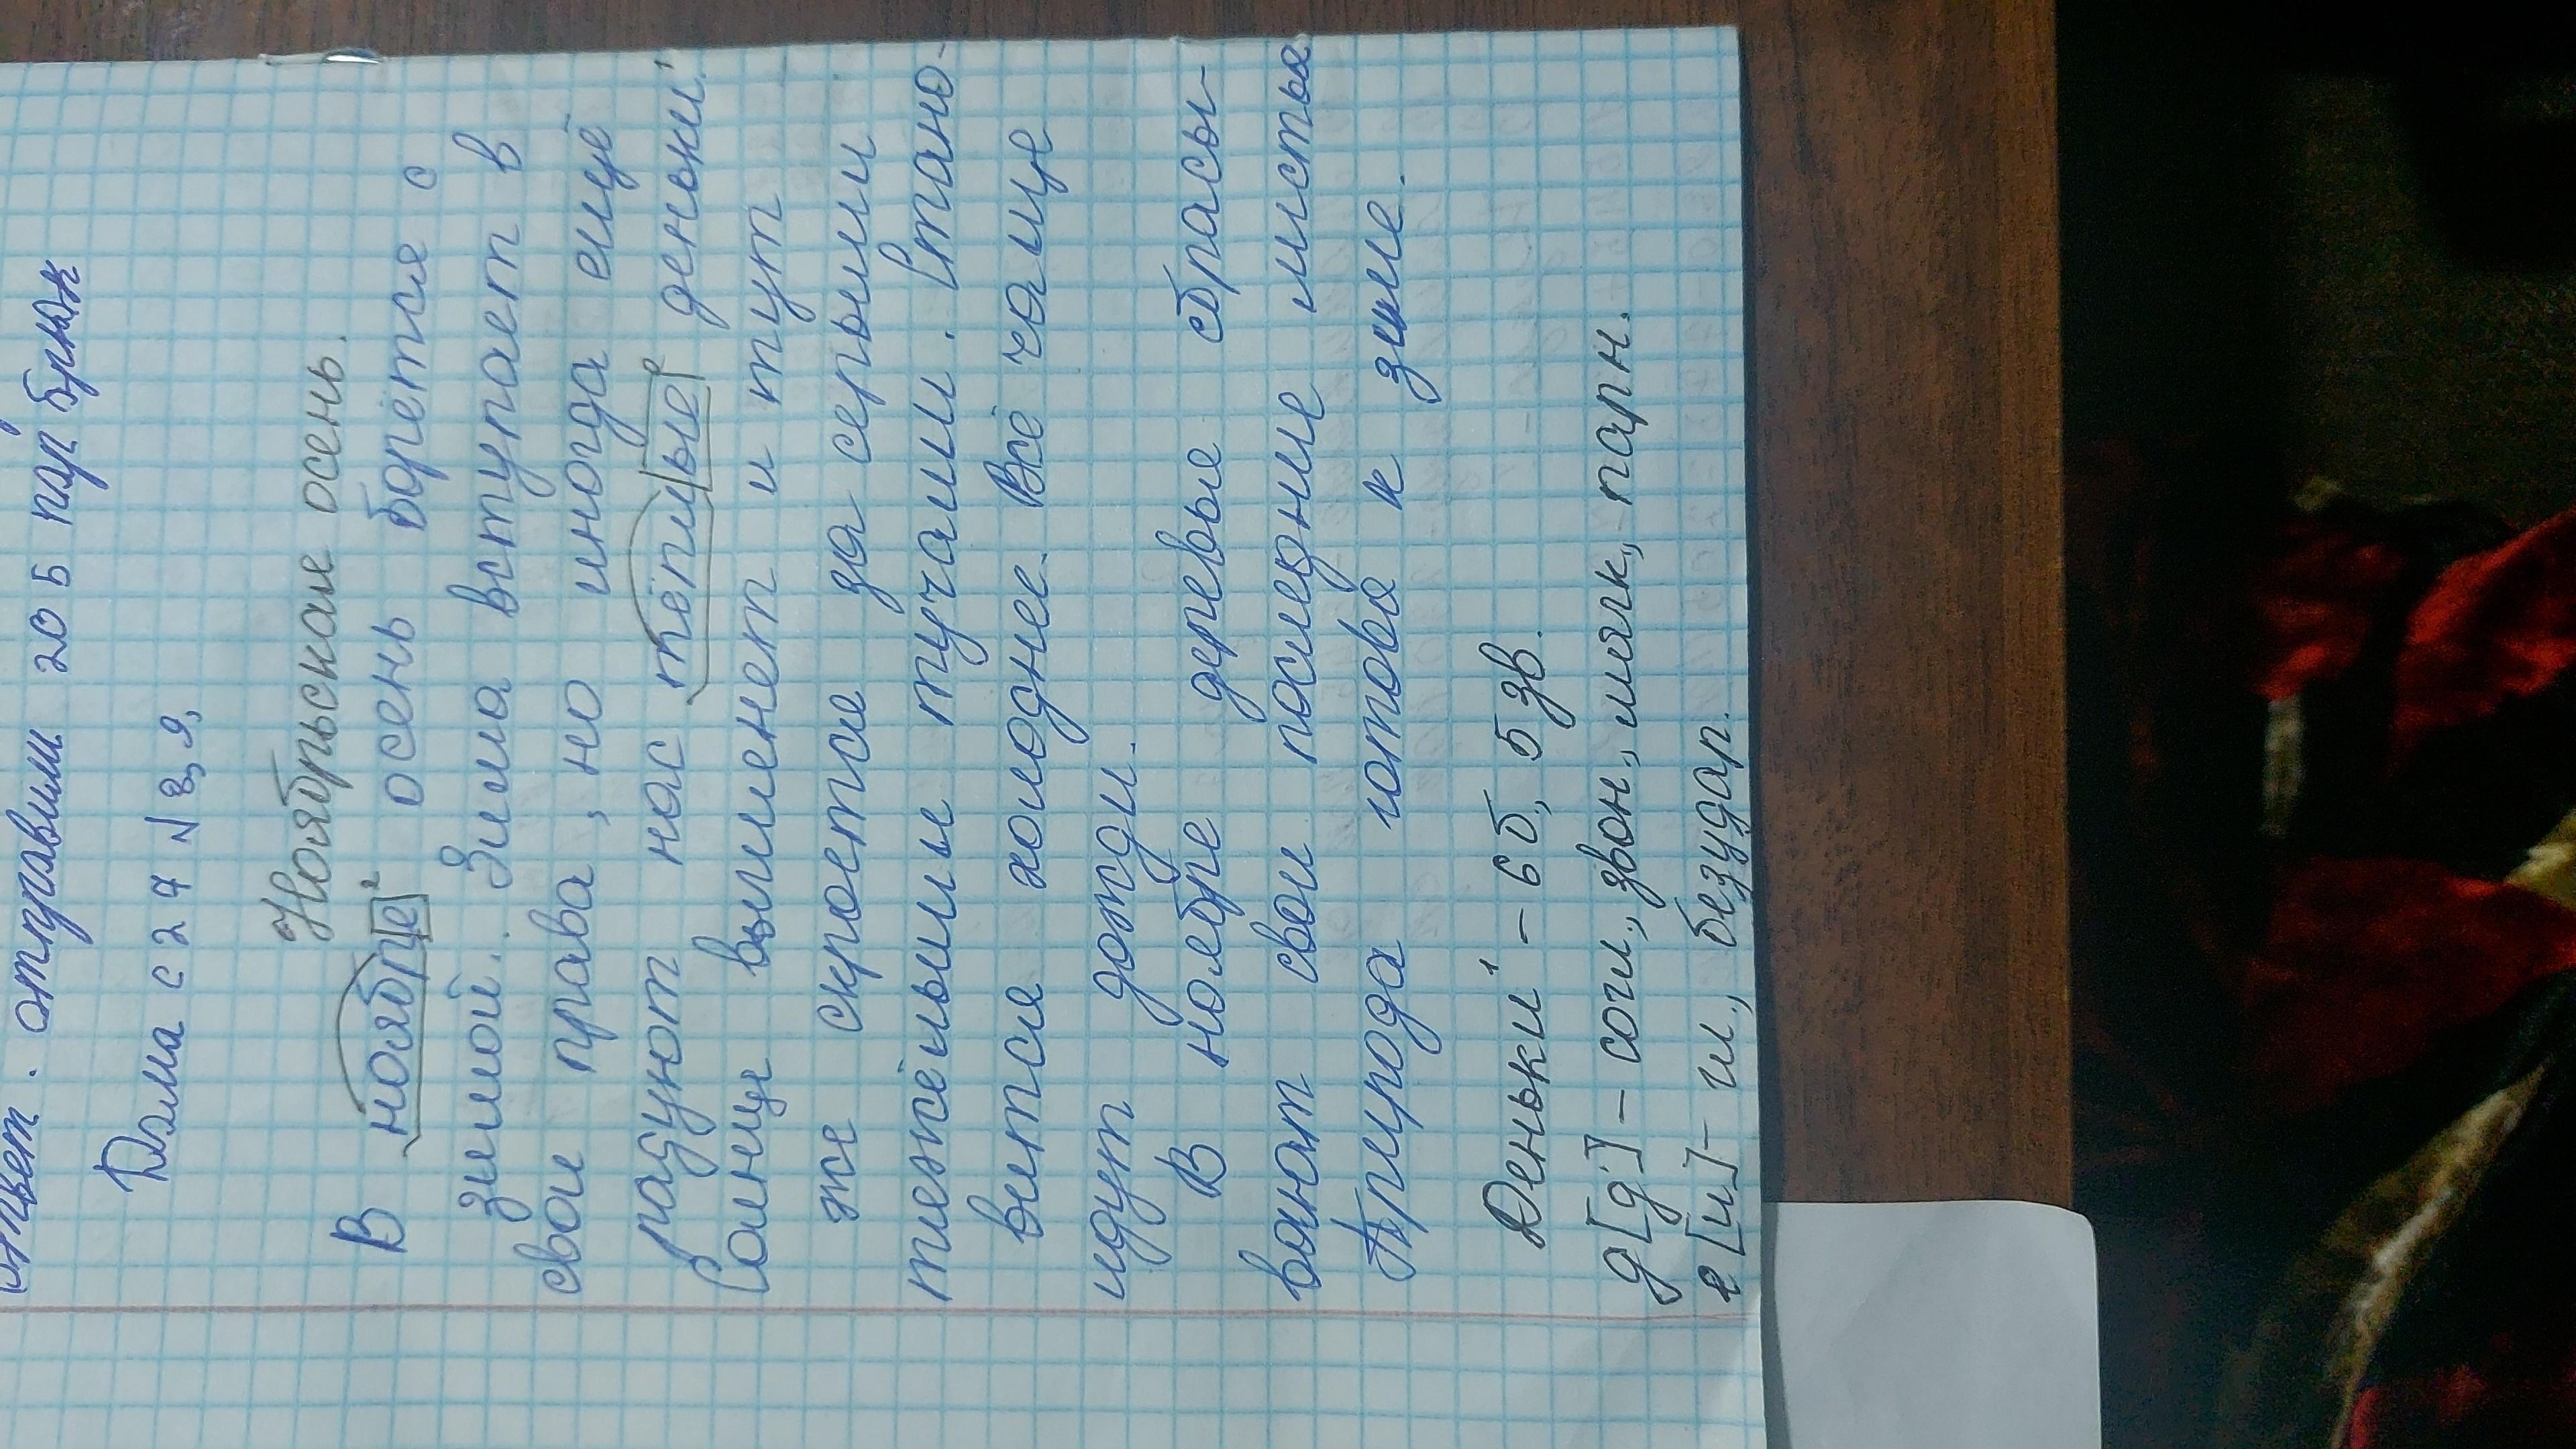 ответ. отправили 205 пар бумаж
Дома с 27 № 8, 9,
Ноябрьская осень.
В ноябре² осень борётся с
зимой. Зима вступает в
свои права, но иногда ещё
радуют нас тёплые деньки¹.
Солнце выглянет и тут
же скроется за серыми
тяжёлыми тучами. Стано-
вится холоднее. Всё чаще
идут дожди.
В ноябре деревья сбрасы-
вают свои последние листья
Природа готова к зиме.
Деньки¹ - 6 б., 5 зв.
д [д'] - согл., звон., мягк., парн.
е [и] - гл., безудар.